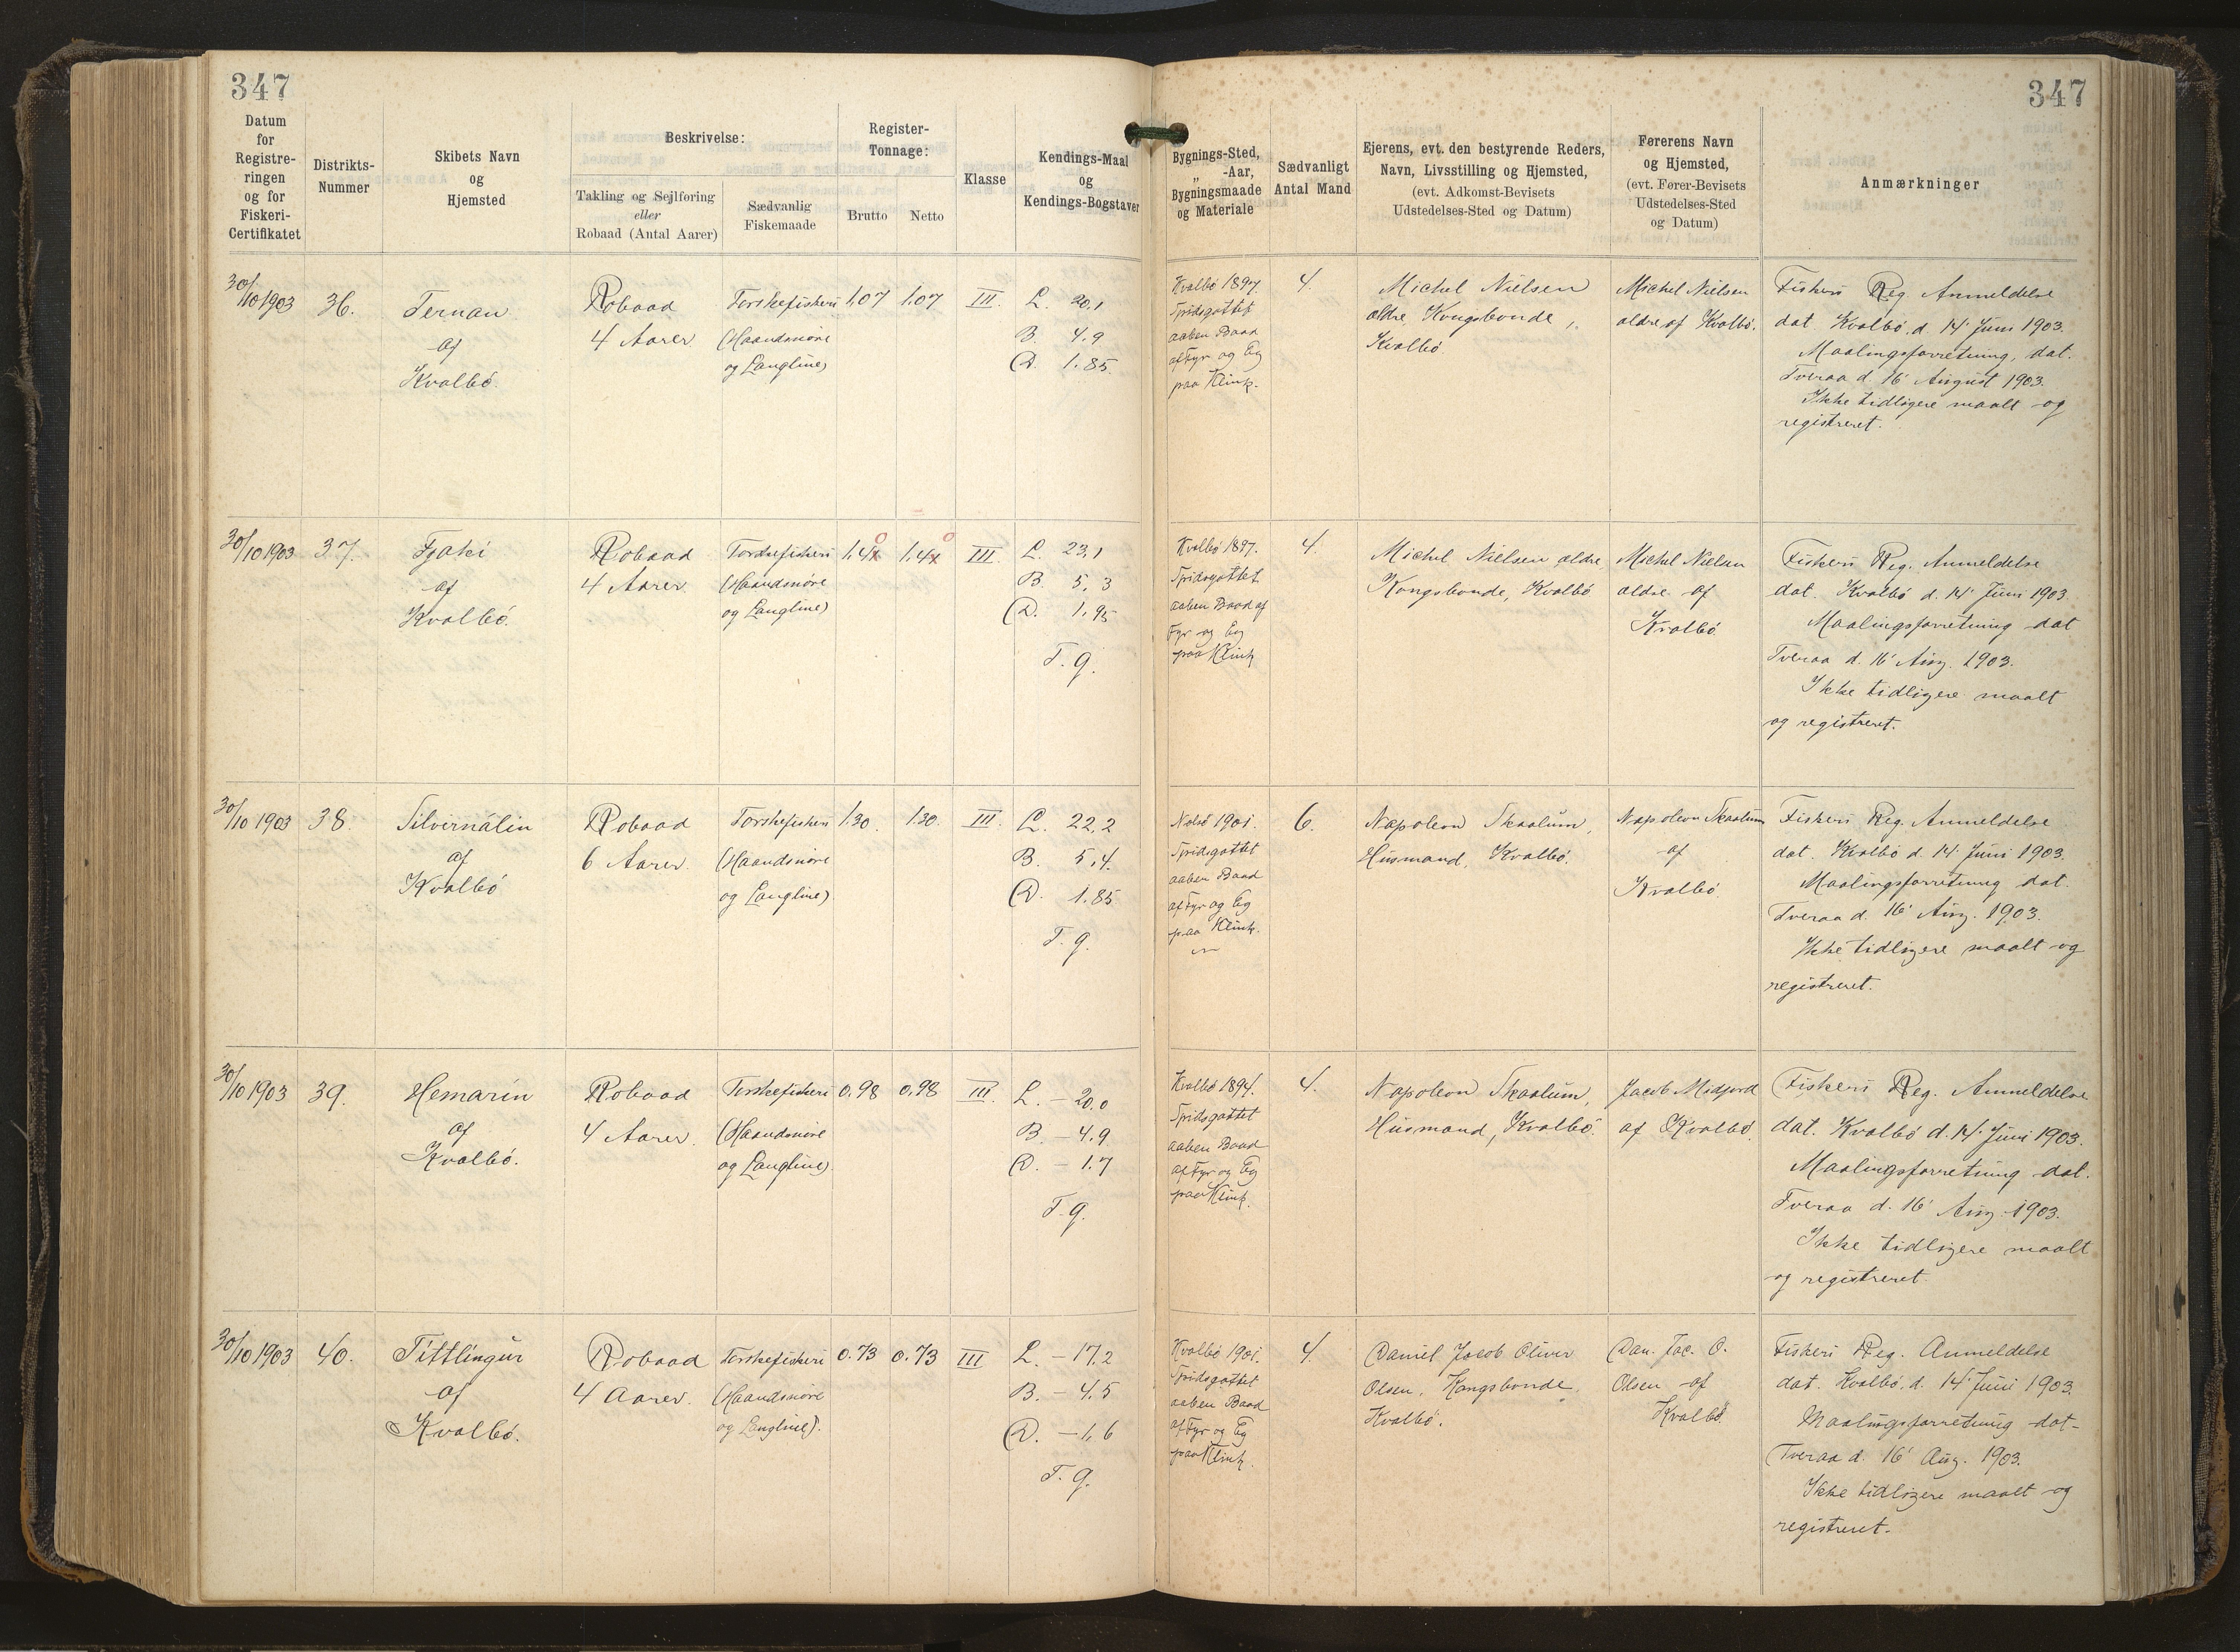 347
347
Datum
for
Registre-
ringen
og for
Fiskeri-
Certifikatet
Distrikts-
Nummer
Skibets Navn
og
Hjemsted
Beskrivelse:
Takling og Sejlføring
eller
Robaad (Antal Aarer)
Sædvanlig
Fiskemaade
Register-
Tonnage:
Brutto
Netto
Klasse
Kendings-Maal
og
Kendings-Bogstaver
Bygnings-Sted,
„ -Aar,
Bygningsmaade
og Materiale
Sædvanligt
Antal Mand
Ejerens, evt. den bestyrende Reders,
Navn, Livsstilling og Hjemsted,
(evt. Adkomst-Bevisets
Udstedelses-Sted og Datum)
Førerens Navn
og Hjemsted,
(evt. Fører-Bevisets
Udstedelses-Sted
og Datum)
Anmærkninger
30/10 1903
36.
Ternan
af
Kvalbö.
Robaad
4 Aarer
Torskefiskeri
(Haandsnöre
og Langline)
1.07
1.07
III.
L. 20,1
B. 4.9
D. 1.85
Kvalbö 1897.
Spidsgattet
aaben Baad
af Fyr og Eg
paa Klink.
4.
Michel Nielsen
ældre, Kongsbonde,
Kvalbö.
Michel Nielsen
ældre af Kvalbö.
Fiskeri Reg. Anmeldelse
dat. Kvalbö, d. 14' Juni 1903.
Maalingsforretning, dat.
Tveraa d. 16' August 1903.
Ikke tidligere maalt og
registreret.
30/10 1903
37.
Fjaki
af
Kvalbö.
Robaad
4 Aarer
Torskefiskeri
(Haandsnöre
og Langline)
0
1.4x
0
1.4x
III.
L. 23,1
B. 5,3
D. 1,95
T. g.
Kvalbö 1897.
Spidsgattet
aaben Baad af
Fyr og Eg
paa Klink
4.
Michel Nielsen ældre,
Kongsbonde, Kvalbö
Michel Nielsen
ældre af
Kvalbö
Fiskeri Reg. Anmeldelse
dat. Kvalbö d. 14' Juni 1903.
Maalingsforretning dat
Tveraa d. 16' Aug. 1903.
Ikke tidligere maalt
og registreret.
30/10 1903
38.
Silvirnálin
af
Kvalbö
Robaad
6 Aarer.
Torskefiskeri
(Haandsnöre
og Langline)
1.30.
1.30.
III.
L. 22,2
B. 5,4.
D. 1.85
T. g.
Nolsö 1901.
Spidsgattet
aaben Baad
af Fyr og Eg
paa Klink.
6.
Napoleon Skaalum,
Husmand, Kvalbö.
Napoleon Skaalum
af
Kvalbö
Fiskeri Reg. Anmeldelse
dat. Kvalbö d. 14' Juni 1903.
Maalingsforretning dat.
Tveraa d. 16' Aug. 1903.
Ikke tidligere maalt og
registreret.
30/10 1903
39.
Hemarin
af
Kvalbö.
Robaad
4 Aarer.
Torskefiskeri
(Haandsnöre
og Langline)
0,98
0,98
III.
L. – 20.0
B. – 4.9
D. – 1.7
T. g.
Kvalbö 1894.
Spidsgattet
aaben Baad
af Fyr og Eg
paa Klink.
4.
Napoleon Skaalum,
Husmand, Kvalbö.
Jacob Midjord
af Kvalbö.
Fiskeri Reg. Anmeldelse
dat. Kvalbö d. 14' Juni 1903.
Maalingsforretning dat.
Tveraa d. 16' Aug. 1903.
Ikke tidligere maalt
og registreret.
30/10 1903
40.
Títtlingur
af
Kvalbö.
Robaad
4 Aarer.
Torskefiskeri
(Haandsnöre
og Langline).
0.73
0.73
III
L. – 17.2
B. – 4.5
D. – 1,6
T. g.
Kvalbö 1901.
Spidsgattet
aaben Baad
af Fyr og Eg
paa Klink.
4.
Daniel Jacob Oliver
Olsen, Kongsbonde,
Kvalbö.
Dan. Jac. O.
Olsen af
Kvalbö.
Fiskeri Reg. Anmeldelse
dat. Kvalbö, d. 14' Juni 1903.
Maalingsforretning dat-
Tveraa d. 16' Aug. 1903.
Ikke tidligere maalt og
registreret.